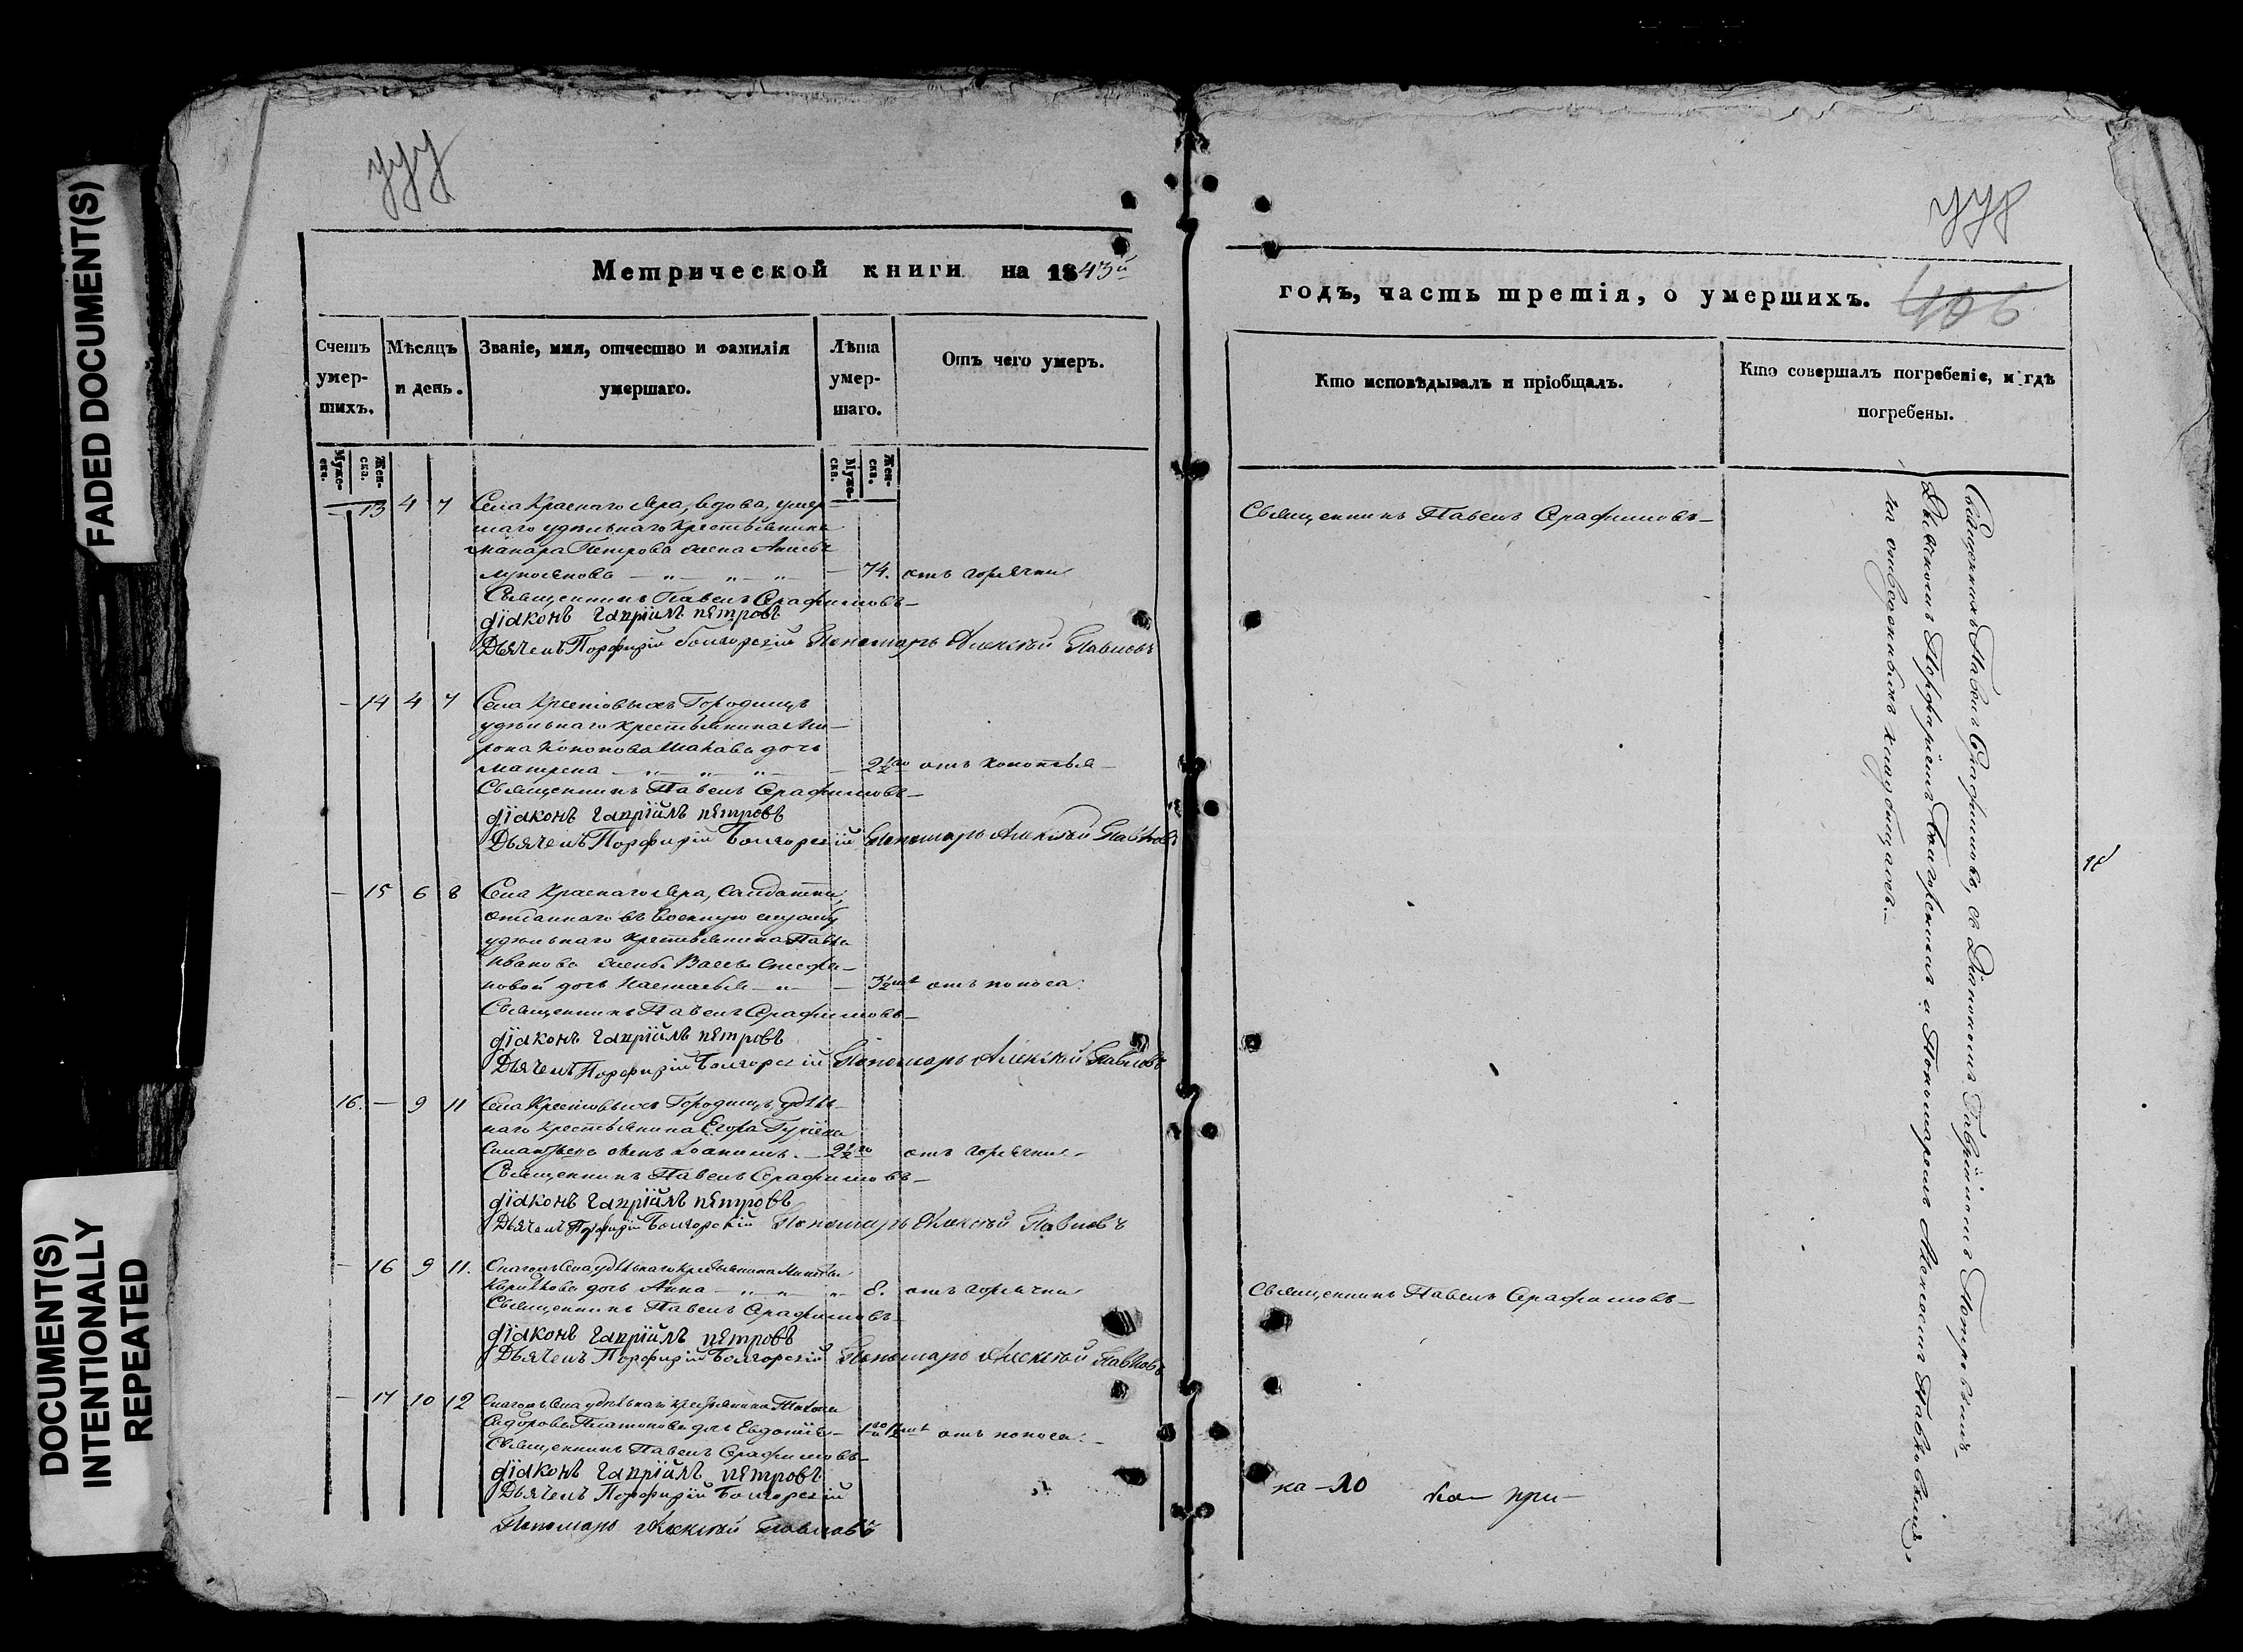 FADED DOCUMENT(S)
DOCUMENT(S)
INTENTIONALLY
REPEATED
Метрической книги на 1843й
Счетъ умер-шихъ.
Мѣсяцъ и день.
Званіе, имя, отчество и фамилія умершаго.
Лѣта умер-шаго.
Отъ чего умеръ.
Муже-ска.
Жен-ска.
Муже-ска.
Жен-ска.
13 4 7 Села Краснаго Яра, вдова, умер-
шаго удѣльнаго крестьянина
Макара Петрова жена
74. отъ горячки
Священникъ Павелъ Серафимовъ
діаконъ гавріилъ петровъ
Дьячекъ Порфирій Болгорскій Пономарь Алексѣй Павловъ
14 4 7 Села Крестовыхъ Городищъ
удѣльнаго крестьянина Ми-
рона Кононова дочь
Матрена 2½ го отъ
Священникъ Павелъ Серафимовъ
діаконъ гавріилъ петровъ
Дьячекъ Порфирій Болгорскій Пономарь Алексѣй Павловъ
15 6 8 Села Краснаго Яра, Салдатки,
отданнаго въ военную службу
удѣльнаго крестьянина Павла
Иванова жены
новой дочь Настасья отъ поноса.
Священникъ Павелъ Серафимовъ
діаконъ гавріилъ петровъ
Дьячекъ Порфирій Болгорскій Пономарь Алексѣй Павловъ
16. 9 11 Села Крестовыхъ Городищъ удѣль-
наго крестьянина Егора
сынъ 2½ го отъ горячки
Священникъ Павелъ Серафимовъ
діаконъ гавріилъ петровъ
Дьячекъ Порфирій Болгорскій Пономарь Алексѣй Павловъ
16 9 11. Тогожъ Села удѣльнаго крестьянина Никиты
дочь Анна 8. отъ горячки
Священникъ Павелъ Серафимовъ
діаконъ гавріилъ петровъ
Дьячекъ Порфирій Болгорскій Пономарь Алексѣй Павловъ
17 10 12 Тогожъ Села удѣльнаго крестьянина
Сидорова Платонова дочь Евдокія отъ поноса.
Священникъ Павелъ Серафимовъ
діаконъ гавріилъ петровъ
Дьячекъ Порфирій Болгорскій
Пономарь Алексѣй Павловъ
406
годъ, часть третія, о умершихъ.
Кто исповѣдывалъ и пріобщалъ.
Кто совершалъ погребеніе, и гдѣ погребены.
Священникъ Павелъ Серафимовъ
Священникъ Павелъ Серафимовъ
ка-10 ка при-
Священникъ Павелъ Серафимовъ, съ Діакономъ Гавріиломъ Петровымъ
Дьячкомъ Порфиріемъ Болгорскимъ и Пономаремъ Алексѣемъ Павловскимъ,
на отведенномъ кладбищѣ